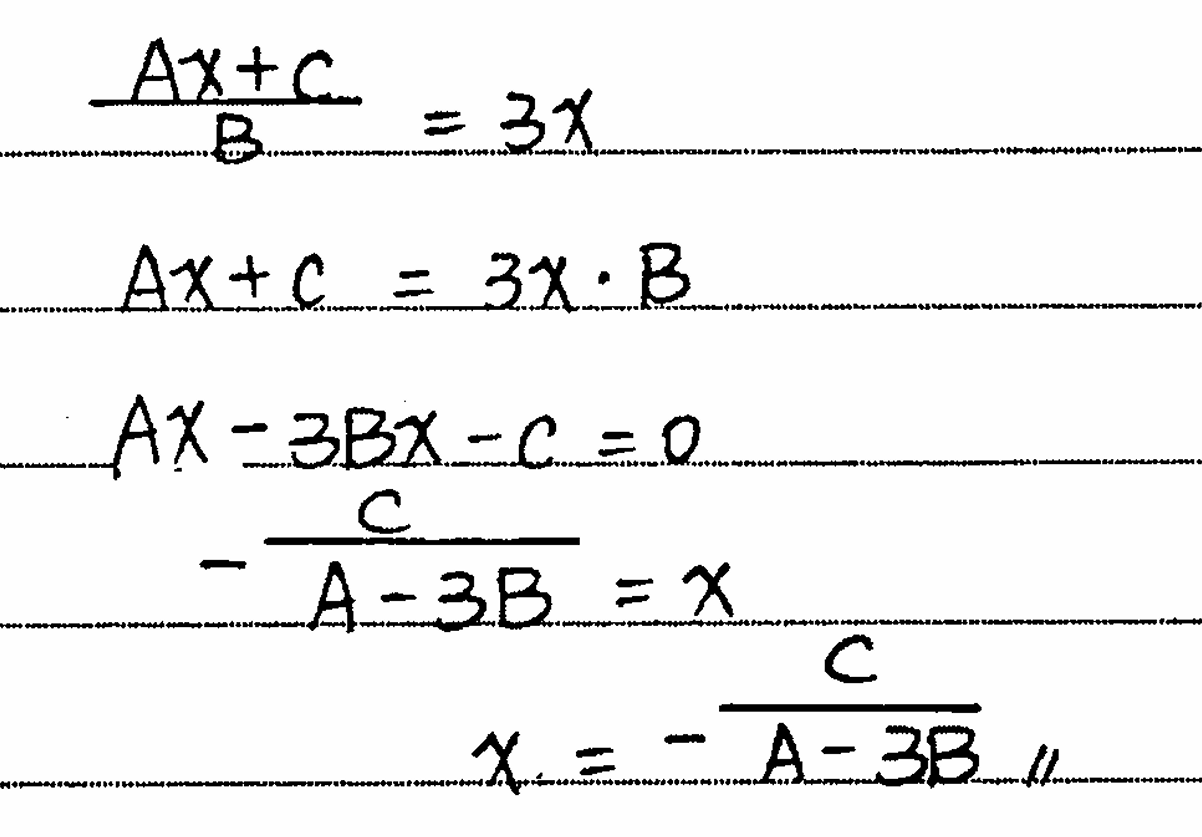 Ax+C/B = 3x
Ax+C = 3x·B
Ax-3Bx-C=0
-C/A-3B = x
x = -C/A-3B //